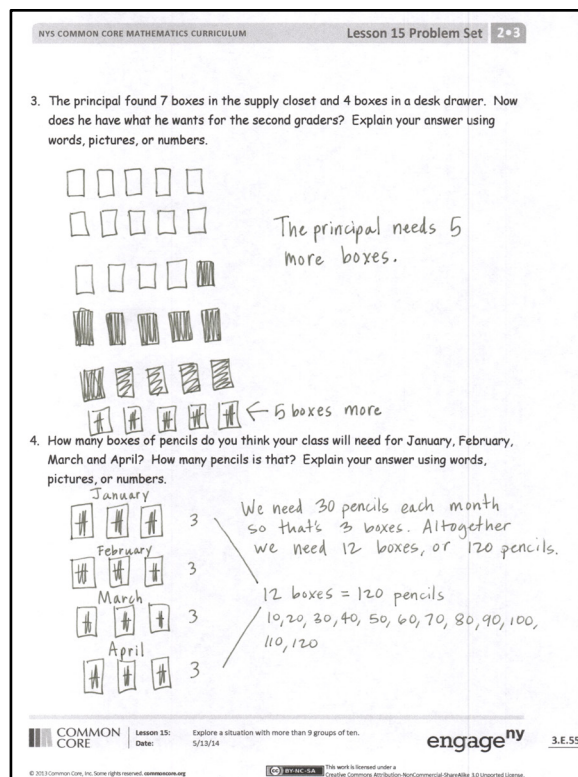 NYS COMMON CORE MATHEMATICS CURRICULUM
Lesson 15 Problem Set
2•3
3. The principal found 7 boxes in the supply closet and 4 boxes in a desk drawer. Now
does he have what he wants for the second graders? Explain your answer using
words, pictures, or numbers.
The principal needs 5
more boxes.
← 5 boxes more
4. How many boxes of pencils do you think your class will need for January, February,
March and April? How many pencils is that? Explain your answer using words,
pictures, or numbers.
January
3
February
3
March
3
April
3
We need 30 pencils each month
so that's 3 boxes. Altogether
we need 12 boxes, or 120 pencils.
12 boxes = 120 pencils
10, 20, 30, 40, 50, 60, 70, 80, 90, 100,
110, 120
COMMON
CORE
Lesson 15:
Explore a situation with more than 9 groups of ten.
Date:
5/13/14
engage ny
3.E.55
© 2013 Common Core, Inc. Some rights reserved. commoncore.org
CC BY-NC-SA
This work is licensed under a
Creative Commons Attribution-NonCommercial-ShareAlike 3.0 Unported License.